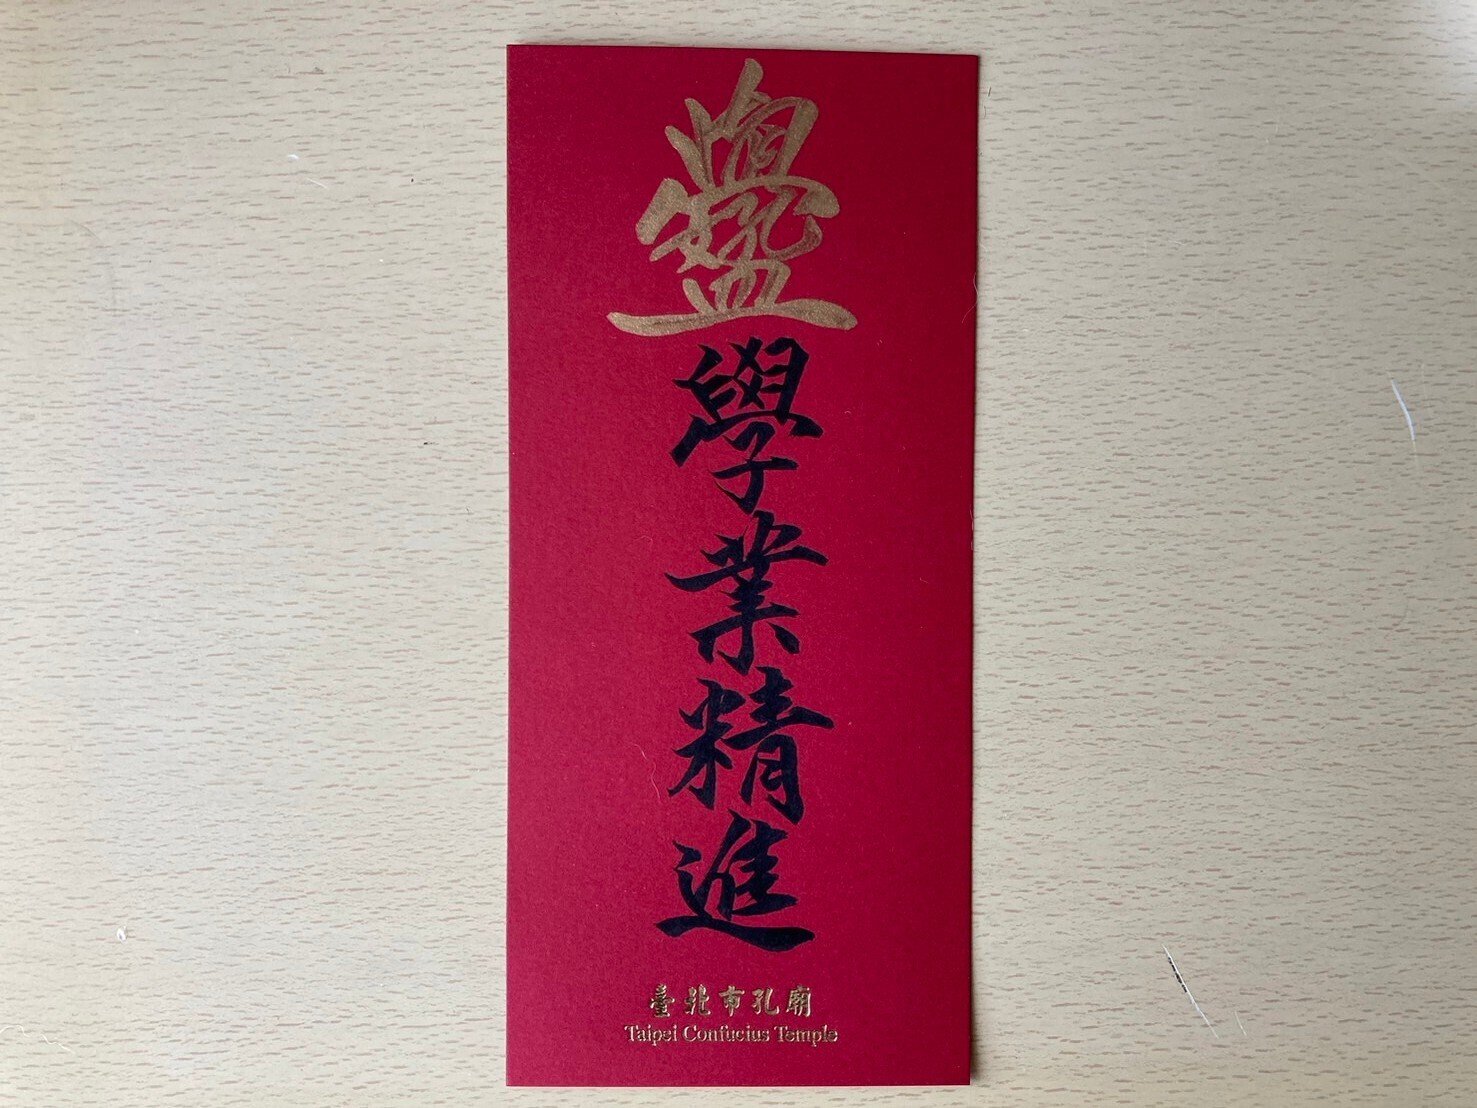 學業精進
臺北市孔廟
Taipei Confucius Temple